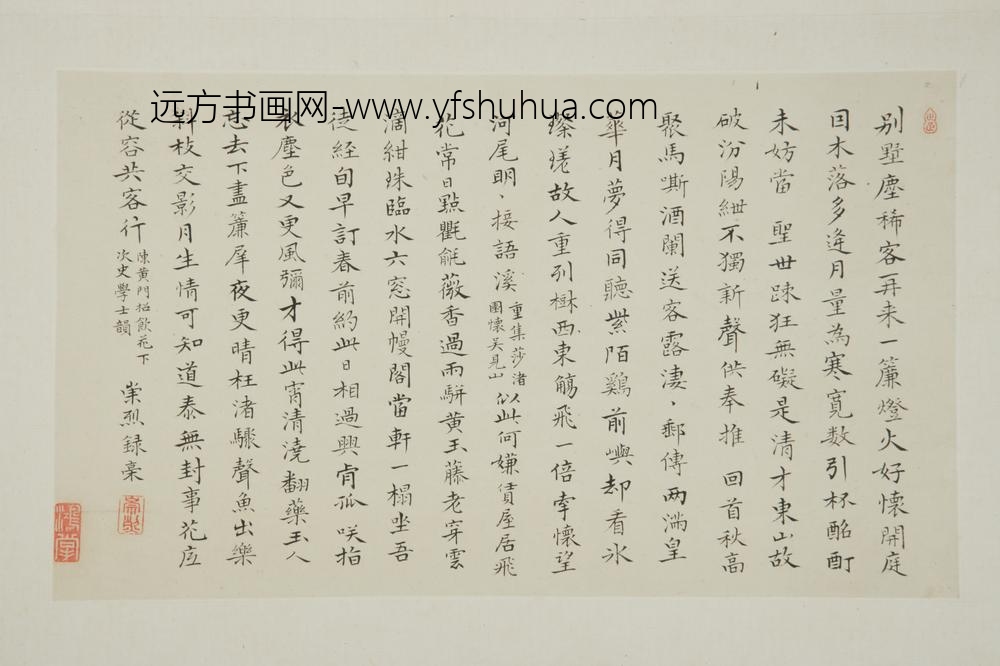 远方书画网-www.yfshuhua.com
别墅塵稀客再来一簾燈火好懷開庭
日木落多逢月暈為寒寬数引杯酩酊
未妨當 聖世踈狂無礙是清才東山故
破汾陽紲不獨新聲供奉推 回首秋高
聚馬嘶酒闌送客露淒郵傳两満皇
華月夢得同聽紫陌鷄前 却看氷
璨瑳故人重列 西東觴飛一倍牽懷望
河尾明接語溪 重集莎渚 圃懷吴見山 似此何嫌賃屋居飛
花常日點氍毹薇香過雨駢黄玉藤老穿雲
滴紺珠臨水六窓開幔閣當軒一榻坐吾
徒経旬早訂春前約此日相過興肯孤咲指
塵色又更風彌才得此宵清澆翻藥玉人
去下盡簾犀夜更晴枉渚驟聲魚出樂
斜枝交影月生情可知道泰無封事花底
從容共客行 陳黄門招飲花下 次史學士韻 崇烈録稾
崇烈
鴻堂